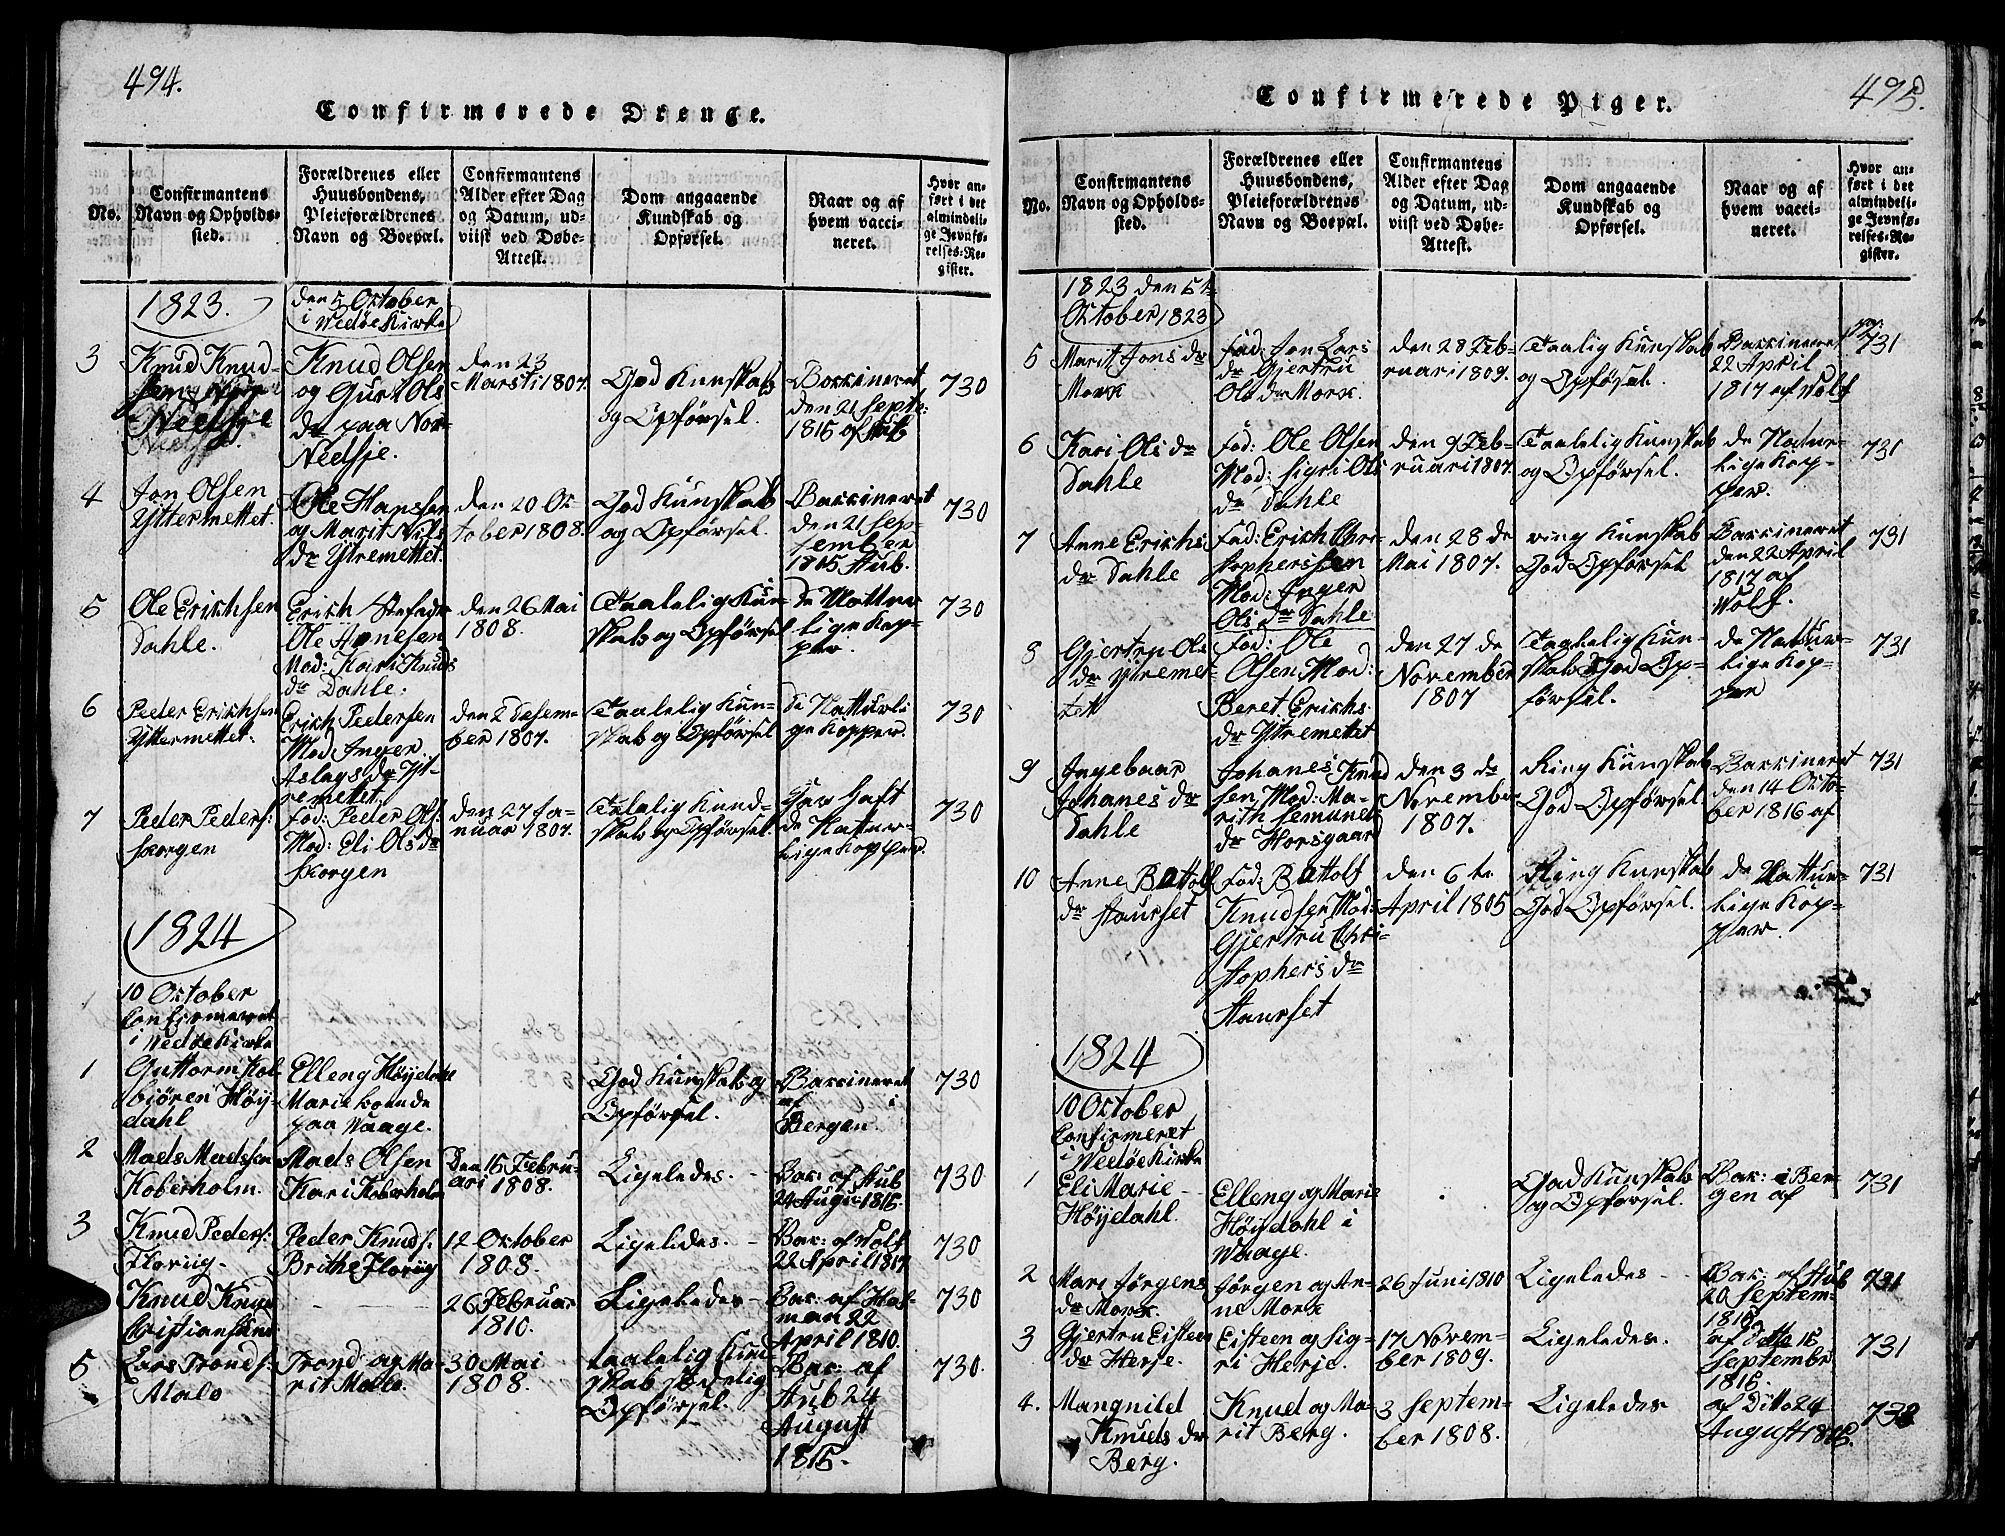 494.
Confirmerede Drenge.
No.
Confirmantens
Navn og Opholds-
sted.
Forældrenes eller
Huusbondens,
Pleieforældrenes
Navn og Boepæl.
Confirmantens
Alder efter Dag
og Datum, ud-
viist ved Døbe-
Attest.
Dom angaaende
Kundskab og
Opførsel.
Naar og af
hvem vacci-
neret.
Hvor an-
ført i det
almindeli-
ge Jevnfø-
relses-Re-
gister.
1823.
den 5 October
i Wedøe Kirke
3
Knud Knud-
sen
Nedsje
Knud Olsen
og Guri Ols
dr paa Nor
Nedsje.
den 23
Marsti 1807.
God Kunskab
og Opførsel.
Vakkineret
den 21 Septe:
1815 af Hub
730
4
Jon Olsen
Yttermettet.
Ole Hanssen
og Marit Nils
dr Ytremettet.
den 20 Ok
tober 1808.
God Kunskab
og Opførsel.
Vakkineret
den 21 Sep-
tember
1815 Hub.
730
5
Ole Erichsen
Dahle.
Erich Stefadr
Ole Arnesen
Mod: Kari Knuds
dr Dahle:
den 26 Mai
1808.
Taalelig Kun-
skab og Opførsel
de Nattur
lige Kop-
per.
730
6
Peder Erichsen
Yttermettet.
Erich Pedersen
Mod Inger
Aslags dr Yt-
remettet
den 2 Desem-
ber 1807.
Taalelig Kun-
skab og Opførsel
de Natturli
ge Kopper.
730
7
Peder Peders:
Skorgen
Fad: Peder Ols:
Mod: Eli Ols dr
Skorgen
den 27 Ja-
nuar 1807.
Talelig Kund-
skab og Opførsel.
Har Haft
de Nattur-
lige Kopper.
730
1824
10 October
Confirmeret
i Wedøe Kirke
1
Guttorm Kol
biören Höy-
dahl
Elleng Höyjdahl
Marie boende
paa Waage.
God Kunskab og
Opførsel.
Vakkineret
af i
Bergen.
730
2
Mads Madssen
Koberholm.
Mads Olsen
Kari Koberholm
Den 15 Febru-
ari 1808.
Ligeledes. -
Vak: af Hub
24 Augu: 1815.
730
3
Knud Peders:
Floriig-
Peder Knuds:
Brithe Floriig
12 October
1808.
Ligeledes. -
Vak: af Wolf
22 April 1817
730
Knud Knu
Christiansund
- - -
26 Februar
1810.
Ligeledes -
Vak: af Hof-
man 22
April 1810.
730
5
Lars Tronds:
Malo
Trond og Ma-
rit Malo.
30 Mai
1808.
taalelig Kund
skab sædelig
Opførsel.
Vak: af
Hub 24
August
1815.
730.
495.
Confirmerede Piger.
No.
Confirmantens
Navn og Opholds-
sted.
Forældrenes eller
Huusbondens,
Pleieforældrenes
Navn og Boepæl.
Confirmantens
Alder efter Dag
og Datum, ud-
viist ved Døbe-
Attest.
Dom angaaende
Kundskab og
Opførsel.
Naar og af
hvem vacci-
neret.
Hvor an-
ført i det
almindeli-
ge Jevnfø-
relses-Re-
gister.
1823 den 5te
October 1823
5
Marit Jons dr
Mork
Fad: Jon Lars
dr Gjertru
Ols dr Mork.
den 28 Feb-
ruari 1809.
Taalig Kunskab
og Opførsel.
Vakkineret
22 April
1817 af Wolf
731
6
Kari Ols dr
Dahle
Fad: Ole Olsen
Mod: Sigri Ols
dr Dahle
den 9 Feb-
ruari 1807.
Taalelig Kunskab
og Opførsel.
de Natur-
lige Kop-
per.
731
7
Anne Erichs
dr Dahle
Fad: Erich Chri-
stopherssen
Mod: Inger
Ols dr Dahle
den 28 de
Mai 1807.
ring Kunskab
God Opførsel
Vakkineret
den 22 April
1817 af
Wolf.
731
8
Gjertru Ols
dr Ytremet-
tett
Fad: Ole
Olsen Mod:
Beret Erichs
dr Ytremettet
den 27 de
November
1807
Taalelig Kun-
skab God Op-
førsel.
de Nattur-
lige Kop-
per
731
9
Ingebaar
Johanes dr
Dahle
Johanes Knud
sen, Mod: Ma-
rith Semunds
dr Horsgaard
den 3 de
November
1807.
Ring Kunskab
God Opførsel.
Vakkineret
den 14 Octo-
ber 1816 af
731
10
Anne Bottolf
dr Staurset
Fad: Bottolf
Knudsen Mod:
Gjertru Chri-
stophers dr
Staurset
den 6 te
April 1805
Ring Kunskab
God Opførsel.
de Nattur-
lige Kop-
per.
731
1824
10 October
Confirmeret
i Wedøe Kirke
1
Eli Marie
Höyjdahl.
Elleng og Marie
Höyjdahl i
Waage.
God Kunskab
og Opførsel.
Vak: i Ber-
gen af
731
2
Mari Jörgens
dr Mork.
Jörgen og An-
ne Mork
26 Juni 1810
Ligeledes -
Vak: af Hub
20 Septem-
1815
731
3
Gjertru Eisteen
dr Herje.
Eisteen og Sig-
ri Herje.
17 Novem-
ber 1809.
Ligeledes.
af dette 15
Septembr
1815.
731
4.
Mangnild
Knuds dr
Berg.
Knud og Ma-
rit Berg.
3 Septem-
ber 1808.
Ligeledes
af Ditto 24
August 1815.